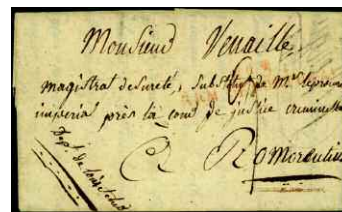 Monsieur Venaille
magistrat de sureté, Substitut de Mr le procureur
imperial près la cour de justice criminelle
à Romorentin
Dept. de Loir et Cher